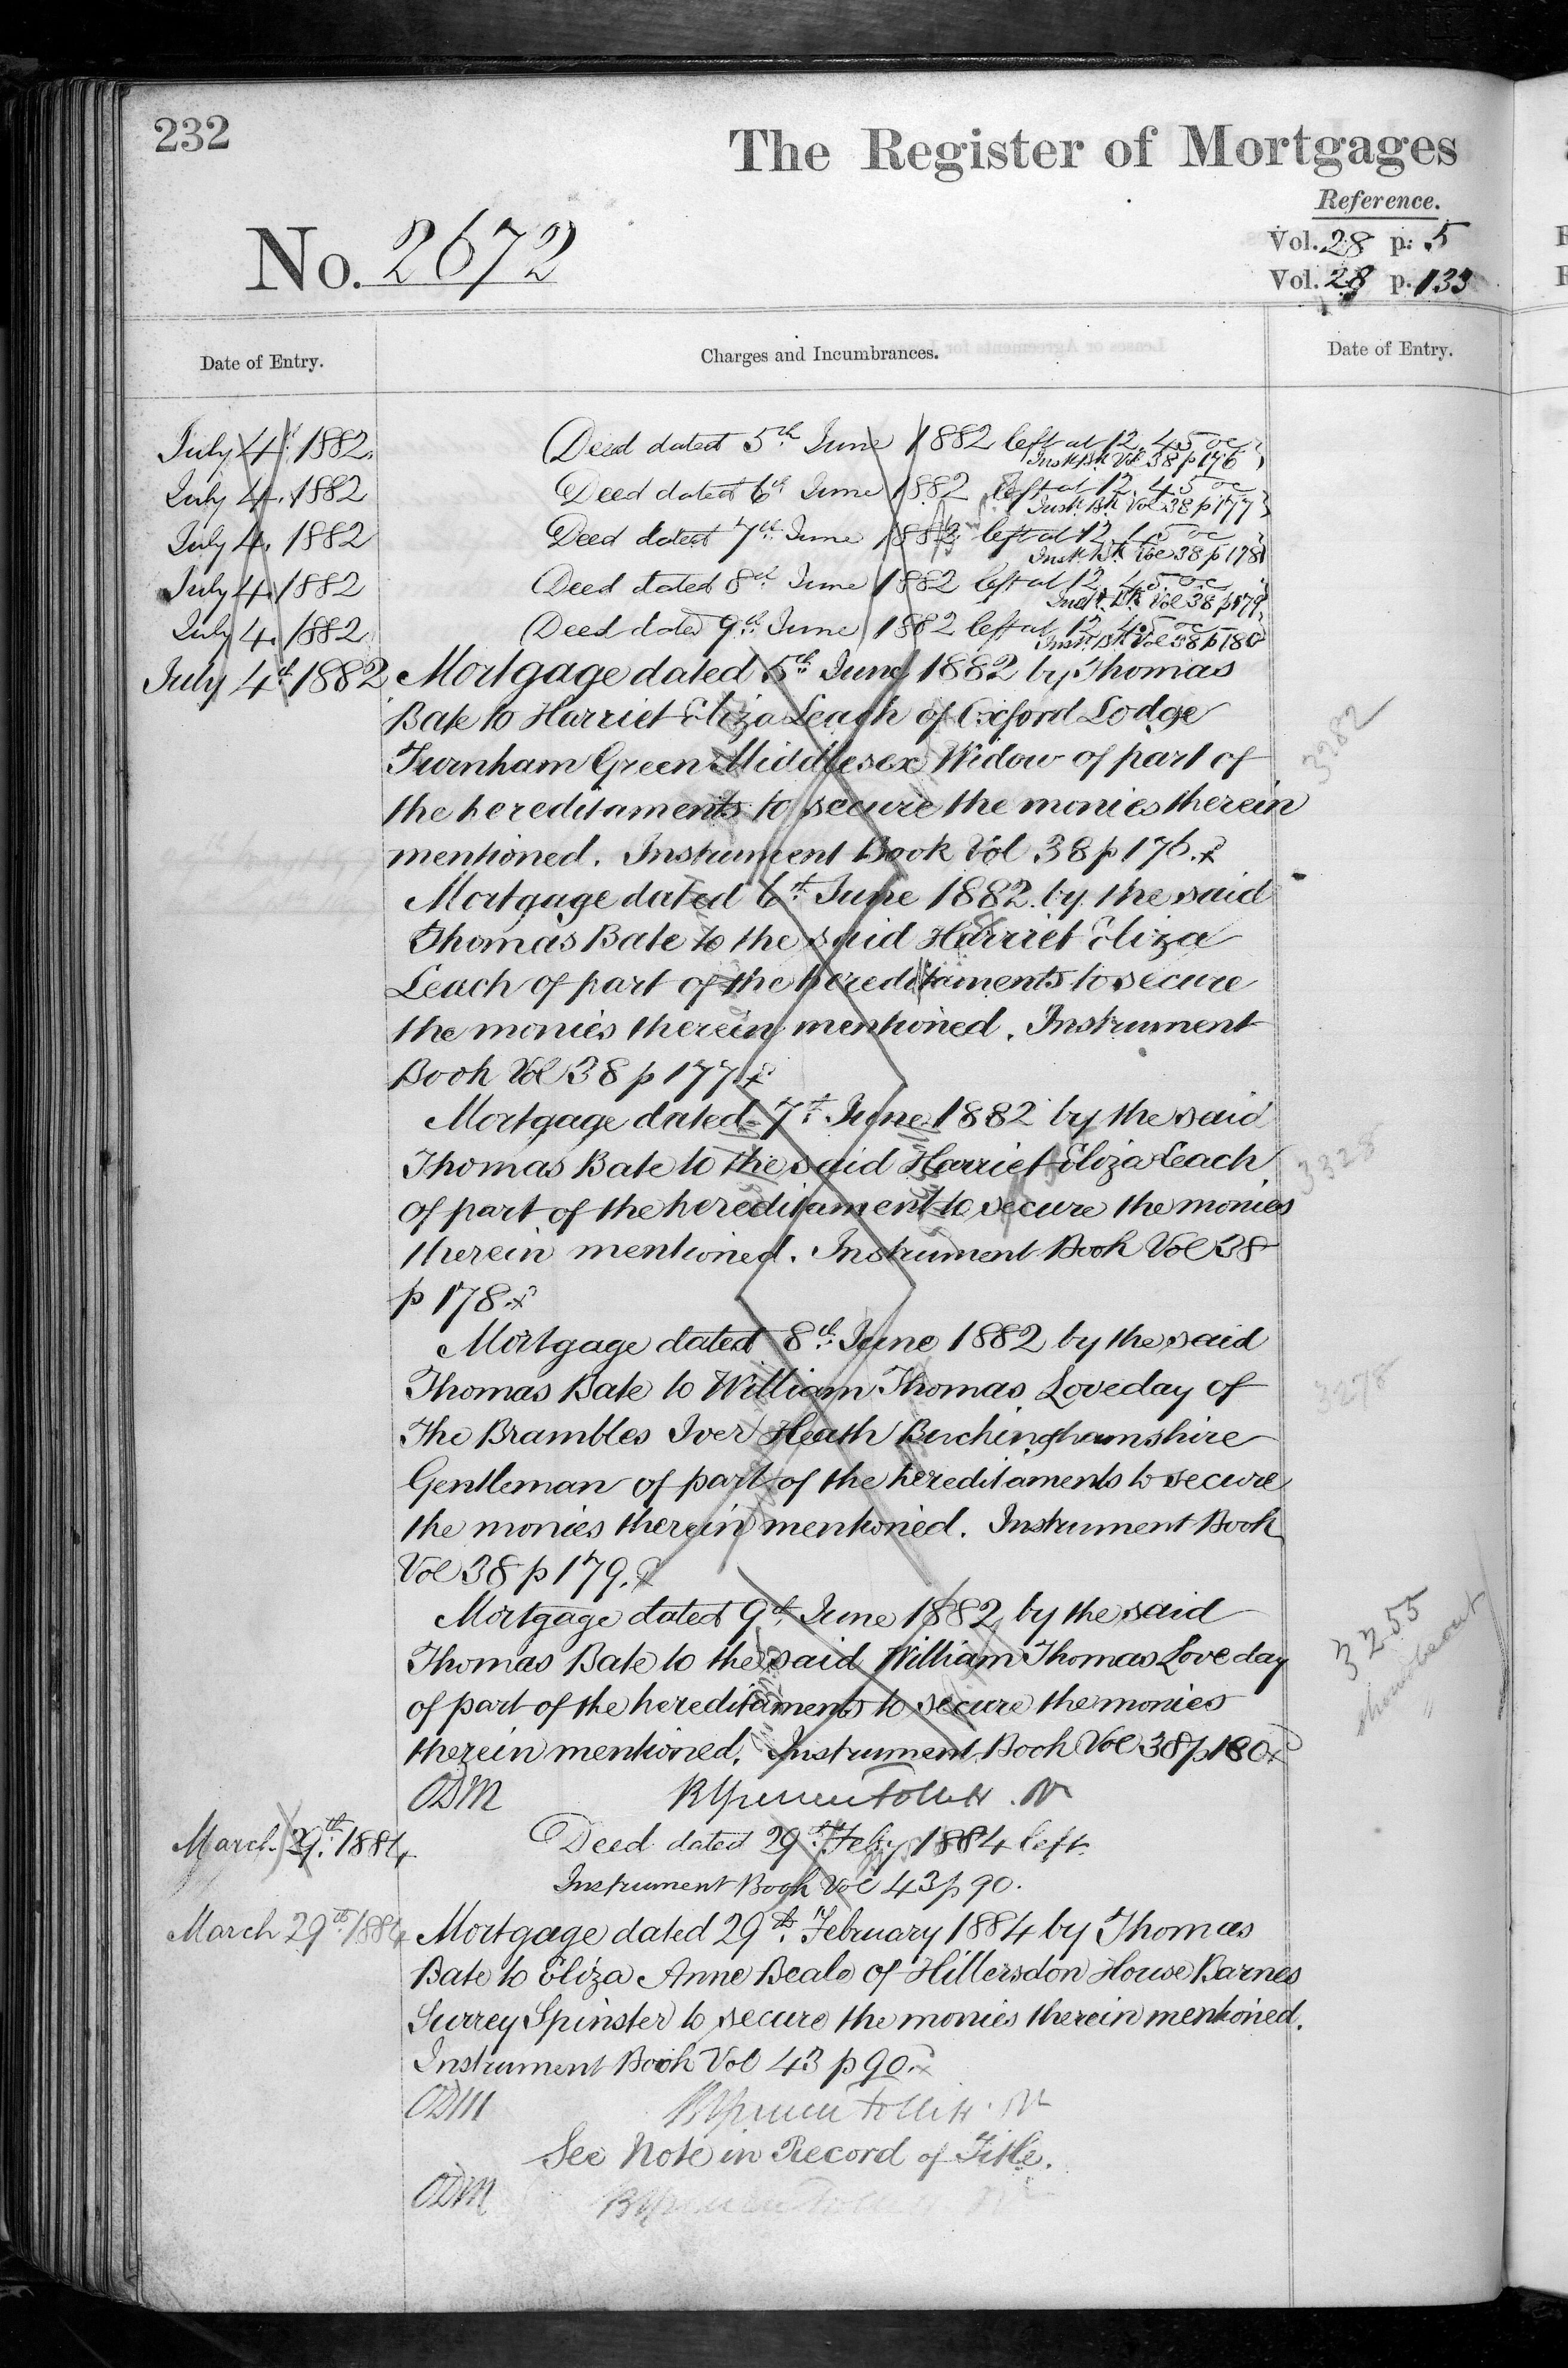 232
The Register of Mortgages
Reference.
No. 2672
Vol. 28 p. 5
Vol. 28 p. 133
Date of Entry.
Charges and Incumbrances.
Date of Entry.
July 4th 1882. Deed dated 5th June 1882 left at 12.45 oc
Inst. Bk Vol 38 p 176
July 4. 1882 Deed dated 6th June 1882 left at 12.45 oc
Inst. Bk Vol 38 p 177
July 4. 1882 Deed dated 7th June 1882 left at 12.45 oc
Inst. Bk Vol 38 p 178
July 4. 1882 Deed dated 8th June 1882 left at 12.45 oc
Inst. Bk Vol 38 p 179
July 4. 1882 Deed dated 9th June 1882 left at 12.45 oc
Inst. Bk Vol 38 p 180
July 4th 1882 Mortgage dated 5th June 1882 by Thomas
Bate to Harriet Eliza Leach of Oxford Lodge
Turnham Green Middlesex Widow of part of
the hereditaments to secure the monies therein
mentioned. Instrument Book Vol 38 p 176.
3282
Mortgage dated 6th June 1882 by the said
Thomas Bate to the said Harriet Eliza
Leach of part of the hereditaments to secure
the monies therein mentioned. Instrument
Book Vol 38 p 177.
Mortgage dated 7th June 1882 by the said
Thomas Bate to the said Harriet Eliza Leach
of part of the hereditament to secure the monies
therein mentioned. Instrument Book Vol 38
p 178.
3328
Mortgage dated 8th June 1882 by the said
Thomas Bate to William Thomas Loveday of
The Brambles Iver Heath Buckinghamshire
Gentleman of part of the hereditaments to secure
the monies therein mentioned. Instrument Book
Vol 38 p 179.
3278
Mortgage dated 9th June 1882 by the said
Thomas Bate to the said William Thomas Loveday
of part of the hereditaments to secure the monies
therein mentioned. Instrument Book Vol 38 p 180
3255
ODM
March 29th 1884 Deed dated 29th Feby 1884 left
Instrument Book Vol 43 p 90.
March 29th 1884 Mortgage dated 29th February 1884 by Thomas
Bate to Eliza Anne Beale of Hillersdon House Barnes
Surrey Spinster to secure the monies therein mentioned.
Instrument Book Vol 43 p 90.
ODM
See Note in Record of Title.
ODM